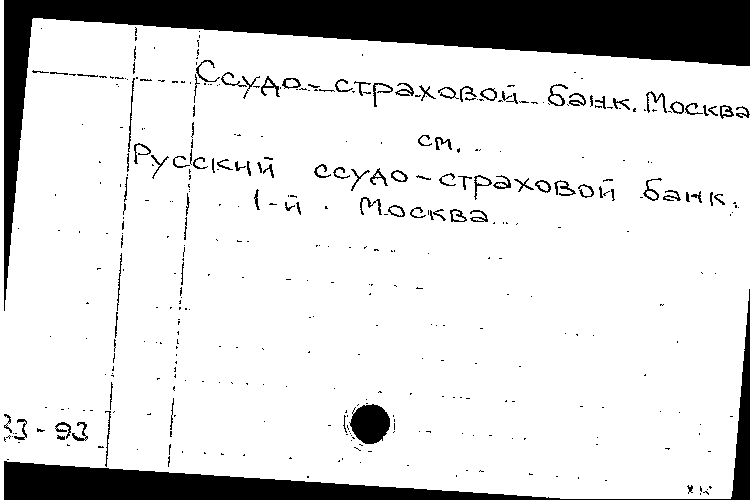 Ссудо-страховой банк. Москва
см.
Русский ссудо-страховой банк.
1-й. Москва
33-93